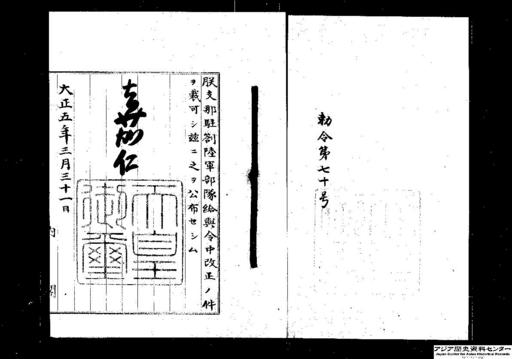 勅令第七十号
朕支那駐劄陸軍部隊給與令中改正ノ件
ヲ裁可シ茲ニ之ヲ公布セシム
嘉仁
天皇御璽
大正五年三月三十一日
内閣
アジア歴史資料センター
Japan Center for Asian Historical Records